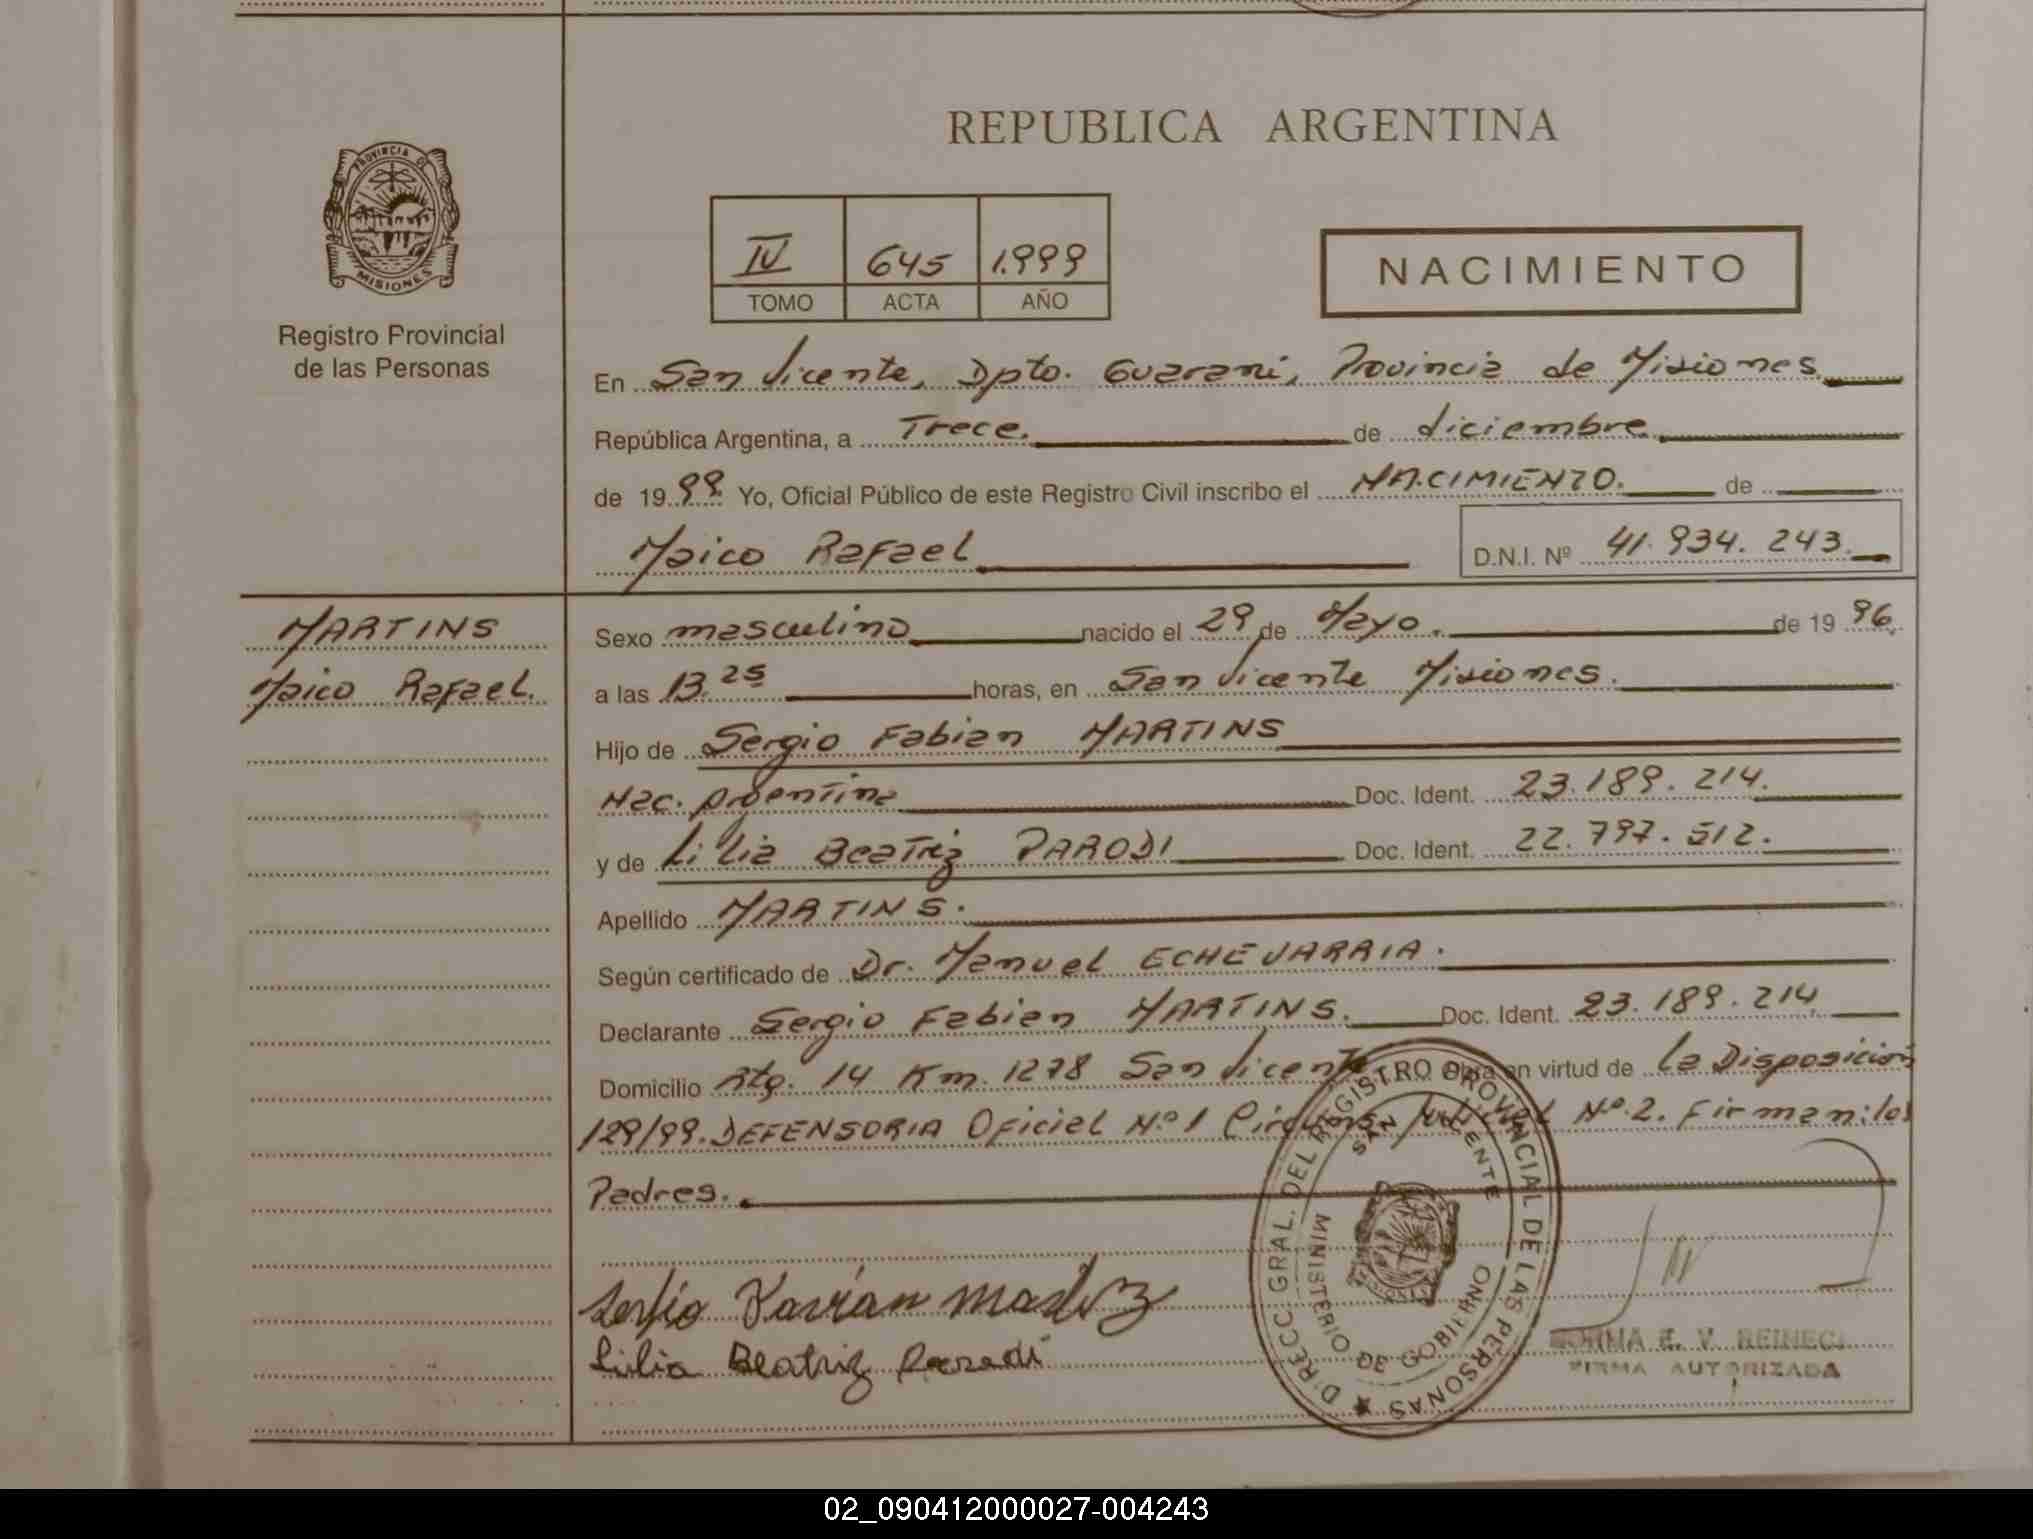 REPUBLICA ARGENTINA
PROVINCIA DE
MISIONES
Registro Provincial
de las Personas
IV 645 1.999
TOMO ACTA AÑO
NACIMIENTO
En San Vicente, Dpto. Guarani, Provincia de Misiones
República Argentina, a Trece. de diciembre
de 1999 Yo, Oficial Público de este Registro Civil inscribo el NACIMIENTO. de
Maico Rafael D.N.I. Nº 41.934.243.
MARTINS
Maico Rafael.
Sexo masculino nacido el 29 de Mayo. de 1996
a las 13.25 horas, en San Vicente Misiones.
Hijo de Sergio Fabian MARTINS
Nac. Argentina Doc. Ident. 23.189.214.
y de Lilia Beatriz PARODI Doc. Ident. 22.797.512.
Apellido MARTINS.
Según certificado de Dr. Manuel ECHEVARRIA.
Declarante Sergio Fabian MARTINS. Doc. Ident. 23.189.214
Domicilio Rta. 14 Km. 1278 San Vicente Obra en virtud de la Disposición
129/99. DEFENSORIA Oficial Nº 1 Circuns. Judicial Nº 2. Firman: los
Padres.
DIRECC. GRAL. DEL REGISTRO PROVINCIAL DE LAS PERSONAS
SAN VICENTE
MINISTERIO DE GOBIERNO
Lilia Beatriz Parodi
NORMA E. V.
FIRMA AUTORIZADA
02_090412000027-004243